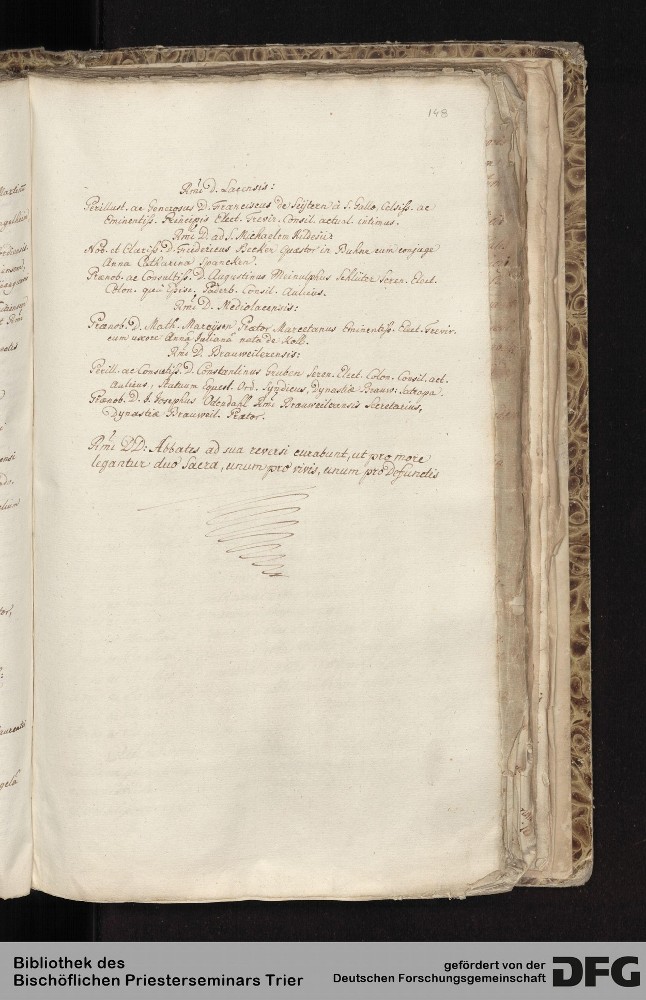 148
Rmi D. Lacensis:
Perillust. ac Generosus D. Franciscus de Seytern à S. Gallo, Celsiss. ac
Eminentiss. Principis Elect. Trevir. Consil. actual. intimus.
Rmi D. ad S. Michaelem Hildesii:
Nob. et Clariss. D. Fridericus Becker Quæstor in cum conjuge
Anna Catharina Spancken.
Prænob. ac Consultiss. D. Augustinus Meinulphus Schlüter Seren. Elect.
Colon. quà Episc. Paderb. Consil. Aulicus.
Rmi D. Mediolacensis:
Prænob. D. Math. Marcijsen Prætor Marcetanus Eminentiss. Elect. Trevir.
cum uxore Anna Juliana nata de Kolb.
Rmi D. Brauweilerensis:
Perill. ac Consultiss. D. Constantinus Gruben Seren. Elect. Colon. Consil. act.
Aulicus, Statuum Equest. Ord. Syndicus, Dynastiæ Brauw: Satrapa.
Prænob. D. J. Josephus Odendahl Rmi Brauweilerensis Secretarius,
Dynastiæ Brauweil. Prætor.
Rmi DD: Abbates ad sua reversi curabunt, ut pro more
legantur duo Sacra, unum pro vivis, unum pro Defunctis
Bibliothek des
Bischöflichen Priesterseminars Trier
gefördert von der
Deutschen Forschungsgemeinschaft
DFG